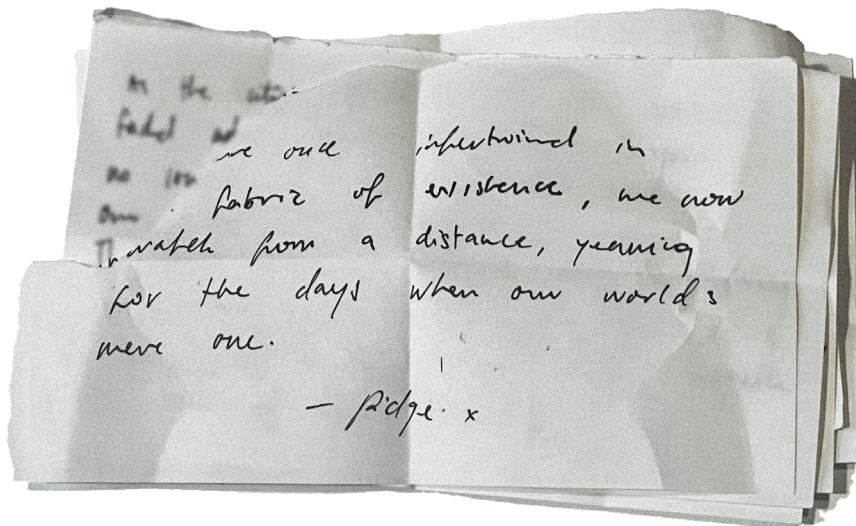 In the
faded
no
we once intertwined in
fabric of existence, we now
watch from a distance, yearning
for the days when our worlds
were one.
— Ridge. x